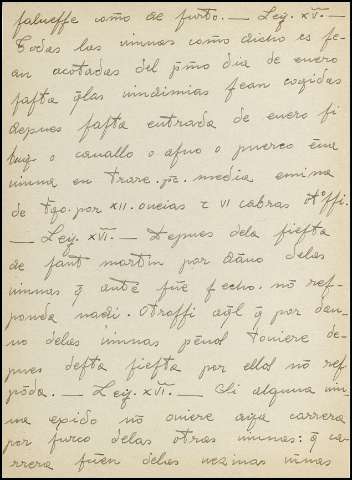 falueffe como de furto. — Ley. XV. —
Todas las uinnas como dicho es fe-
an acotadas del p̃mo dia de enero
fafta q̃las uindimias fean cogidas
depues fafta entrada de enero fi
buey. o cauallo o afno o puerco ẽna
uinna en trare. pc̃. media emina
de tgo. por XII. oueias τ VI cabras otoffi.
— Ley. XVI. — Depues dela fiefta
de fant martin por dãno delas
uinnas q̃ ante fũe fecho. nõ ref-
ponda nadi. Otroffi aq̃l q̃ por dan-
no delas uinnas pẽnol touiere de-
pues defta fiefta por ellol nõ ref
põda. — Ley. XVI. — Si alguna uin-
na exido nõ ouiere aya carrera
por furco delas otras uinnas: q̃ ca-
rrera fũen delas uezinas uinas